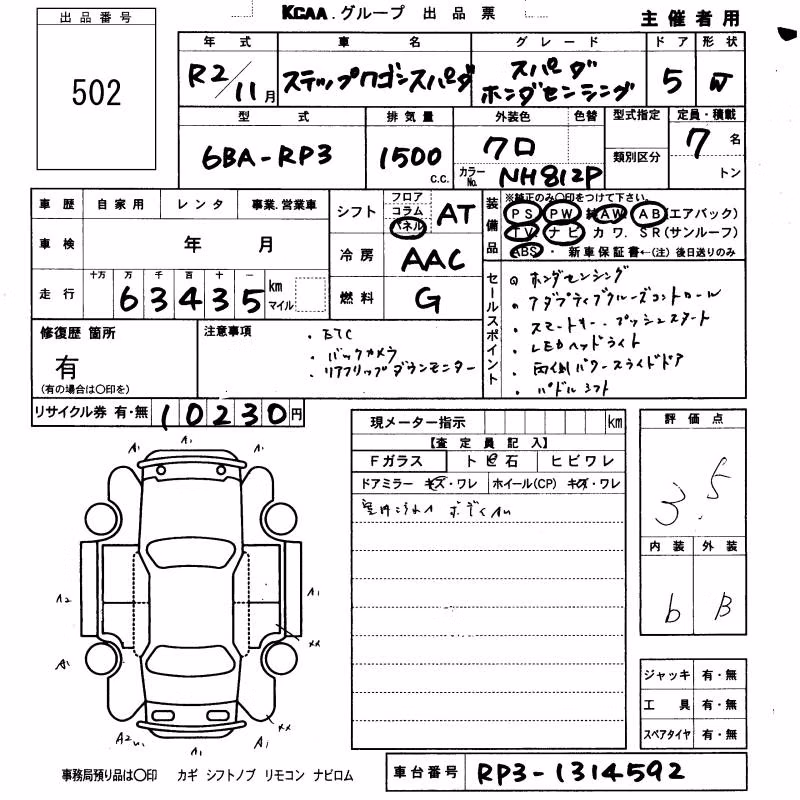 出品番号
502
KCAA.グループ 出品票
主催者用
年式 車名 グレード ドア 形状
R2/11月 ステップワゴンスパーダ スパーダ ホンダセンシング 5 W
型式 排気量 外装色 色替 型式指定 定員・積載
6BA-RP3 1500 c.c. クロ 類別区分 7名
カラーNo. NH812P トン
車歴 自家用 レンタ 事業.営業車
車検 年 月
走行 十万 万 千 百 十 一
63435 km マイル
シフト フロア コラム パネル AT
冷房 AAC
燃料 G
装備品 ※純正のみ○印をつけて下さい。
PS PW 純AW AB(エアバック)
TV ナビ カワ. SR(サンルーフ)
ABS・ 新車保証書←(注)後日送りのみ
セールスポイント
・ホンダセンシング
・アダプティブクルーズコントロール
・スマートキー.プッシュスタート
・LEDヘッドライト
・両側パワースライドドア
・パドルシフト
修復歴 箇所
有
(有の場合は○印を)
注意事項
・ETC
・バックカメラ
・リアフリップダウンモニター
リサイクル券 有・無 10230円
現メーター指示 km
【査定員記入】
Fガラス トビ石 ヒビワレ
ドアミラー キズ・ワレ ホイール(CP) キズ・ワレ
評価点
3.5
内装 外装
b B
A1 A1 A1
A2 A1
A1 XX
A2 A1 A1 XX
ジャッキ 有・無
工具 有・無
スペアタイヤ 有・無
事務局預り品は○印 カギ シフトノブ リモコン ナビロム
車台番号 RP3-1314592